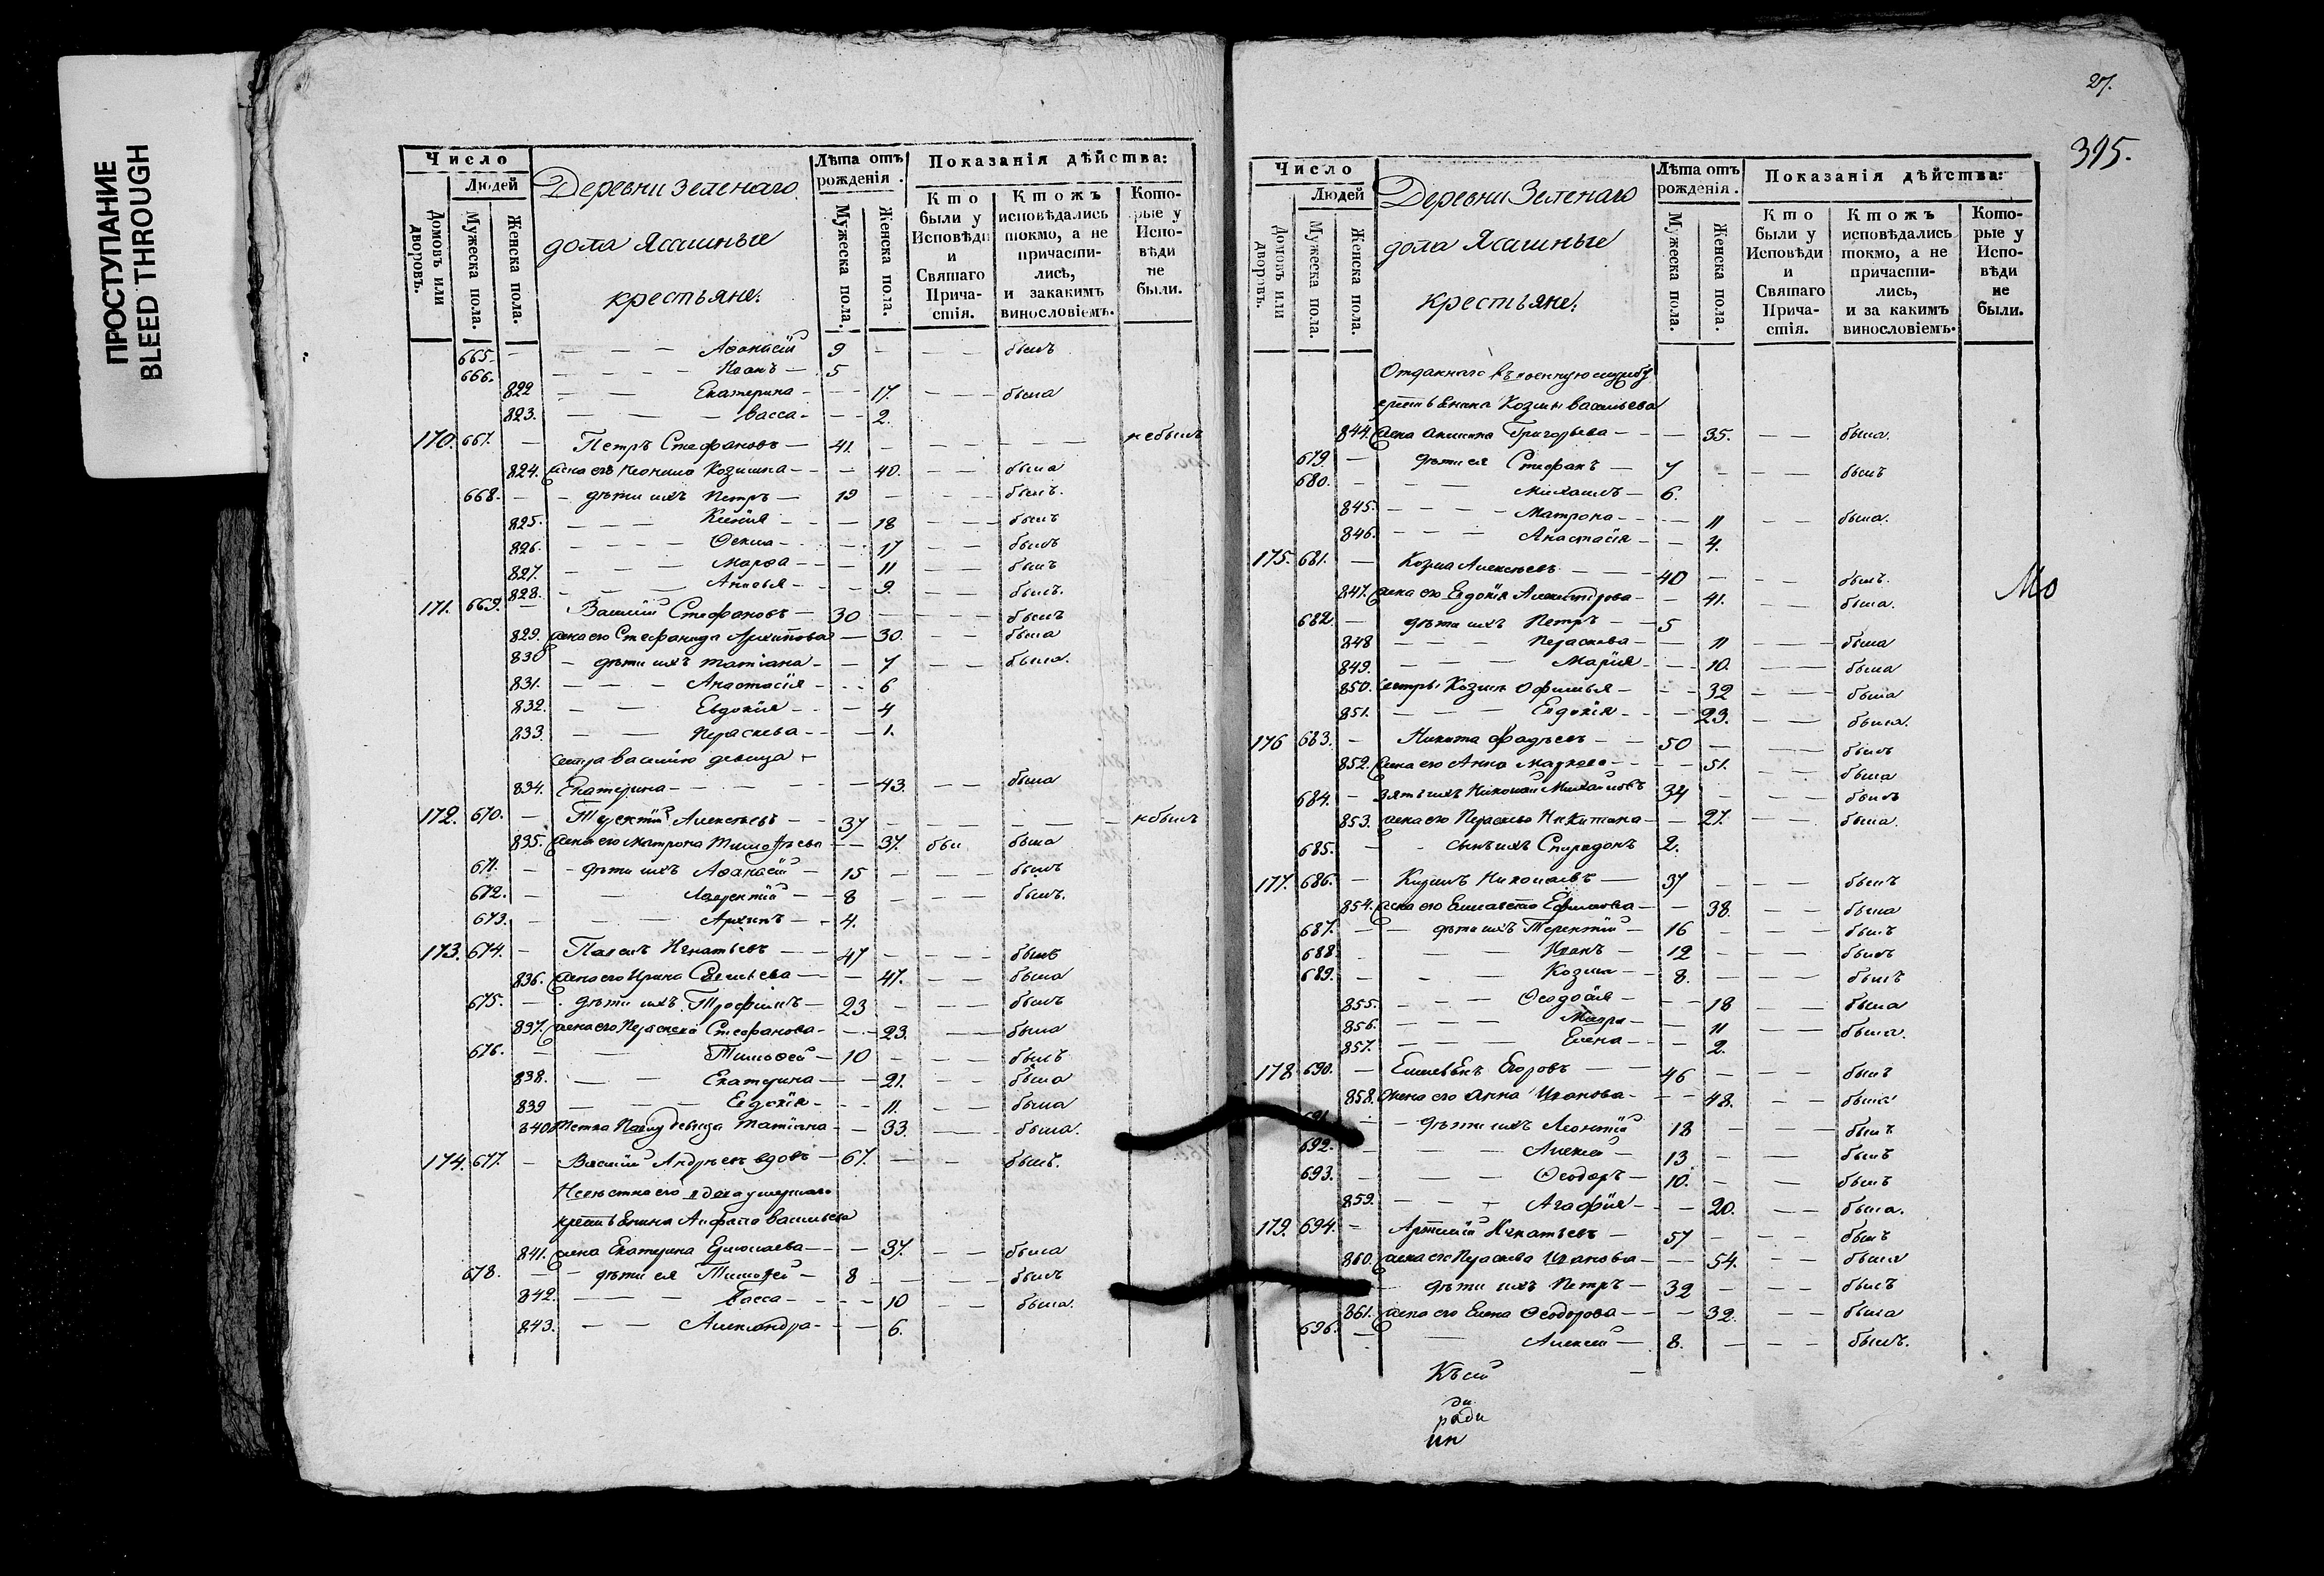 ПРОСТУПАНИЕ
BLEED THROUGH
Число
Людей
Домовъ или дворовъ.
Мужеска пола.
Женска пола.
Деревни Зеленаго
дола Ясашные
крестьяне.
Лѣта отъ рожденія.
Мужеска пола.
Женска пола.
Показанія дѣйства:
Кто были у Исповѣди и Святаго Причастія.
Ктожъ исповѣдались токмо, а не причастились, и закакимъ винословіемъ.
Которые у Исповѣди не были.
665. — Аѳанасій 9 — былъ
666. — Иоанъ — 5
822 — Екатерина — 17. — была
823. — Васса — 2.
170. 667. — Петръ Стефановъ — 41. — небылъ
824. жена его Неонила Козмина — 40. — была
668. — дѣти ихъ Петръ — 19 — былъ.
825. — Ксенія — 18 — былъ
826. — Ѳекла — 17 — былъ
827. — Марѳа — 11 — былъ
828. — Анисья — 9. — былъ.
171. 669. — Василій Стефановъ — 30 — былъ
829. жена его Стефанида Архипова — 30. — была
830 — дѣти ихъ Татіана — 7 — была.
831. — Анастасія — 6
832. — Евдокія — 4
833. — Параскева — 1.
сестра Василію девица
834. Екатерина — 43. — была
172. 670. — Терентій Алексѣевъ — 37 — небылъ
835. жена его Матрона Тимофѣева — 37. бы была
671. — дѣти ихъ Аѳанасій — 15 — былъ
672. — Лаврентій — 8 — былъ.
673. — Архипъ — 4.
173. 674. — Павелъ Игнатьевъ — 47 — былъ
836. жена его Ирина Савельева — 47. — была
675. — дѣти ихъ Трофимъ — 23 — былъ
837. жена его Параскева Стефанова — 23. — была
676. — Тимоѳей — 10 — былъ
838. — Екатерина — 21. — была
839 — Евдокія — 11. — была
840 Тетка Павлу девица Татіана — 33. — была.
174. 677. — Василій Андреевъ вдовъ — 67. — былъ.
Невѣстка его вдова умершаго
крестьянина Василья
841. жена Екатерина Ермолаева — 37. — была
678. — дѣти ея Тимоѳей — 8 — былъ
842. — Васса — 10 — была.
843. — Александра — 6.
27.
395.
Число
Людей
Домовъ или дворовъ.
Мужеска пола.
Женска пола.
Деревни Зеленаго
дола Ясашные
крестьяне.
Лѣта отъ рожденія.
Мужеска пола.
Женска пола.
Показанія дѣйства:
Кто были у Исповѣди и Святаго Причастія.
Ктожъ исповѣдались токмо, а не причастились, и за какимъ винословіемъ.
Которые у Исповѣди не были.
Отданнаго въ военную службу
крестьянина Козмы Васильева
844. жена Григорьева — 35. — была.
679. — дѣти ея Стефанъ — 7 — былъ
680. — Михаилъ — 6.
845. — Матрона — 11 — была.
846. — Анастасія — 4.
175. 681. — Козма Алексѣевъ — 40 — былъ.
847. жена его Евдокія Александрова — 41. — была.
682. — дѣти ихъ Петръ — 5
848 — Параскева — 11 — была
849. — Марія — 10. — была
850. сестры Козмы Офимья — 32 — была
851. — Евдокія — 23. — была.
176 683. — Никита Фадѣевъ — 50 — былъ
852. жена его Анна Маркова — 51. — была
684. — зять ихъ Николай Михайловъ 34 — былъ
853. жена его Параскева Никитина — 27. — была.
685. — сынъ ихъ Спиридонъ 2.
177. 686. — Кирилъ Николаевъ — 37 — былъ
854. жена его Елисавета Ефимова — 38. — была
687. — дѣти ихъ Терентій — 16 — былъ
688. — Иванъ — 12 — былъ
689. — Козма — 8. — былъ
855. — Ѳеодосія — 18 — была
856. — Мавра — 11 — была.
857. — Елена — 2.
178 690. — Егоровъ — 46 — былъ
858. жена его Анна Иванова — 48. — была
691. — дѣти ихъ Леонтій 18 — былъ
692. — Алексей — 13. — былъ
693. — Ѳеодоръ — 10. — былъ
859. — Агафія — 20. — была.
179. 694. — Артемій Игнатьевъ — 57 — былъ
860. жена его Параскева Иванова — 54. — была
— дѣти ихъ Петръ — 32 — былъ
861. жена его Елена Ѳеодорова — 32. — была
696. — Алексей — 8. — былъ.
Мо
Къ сей
ди
ради
ин